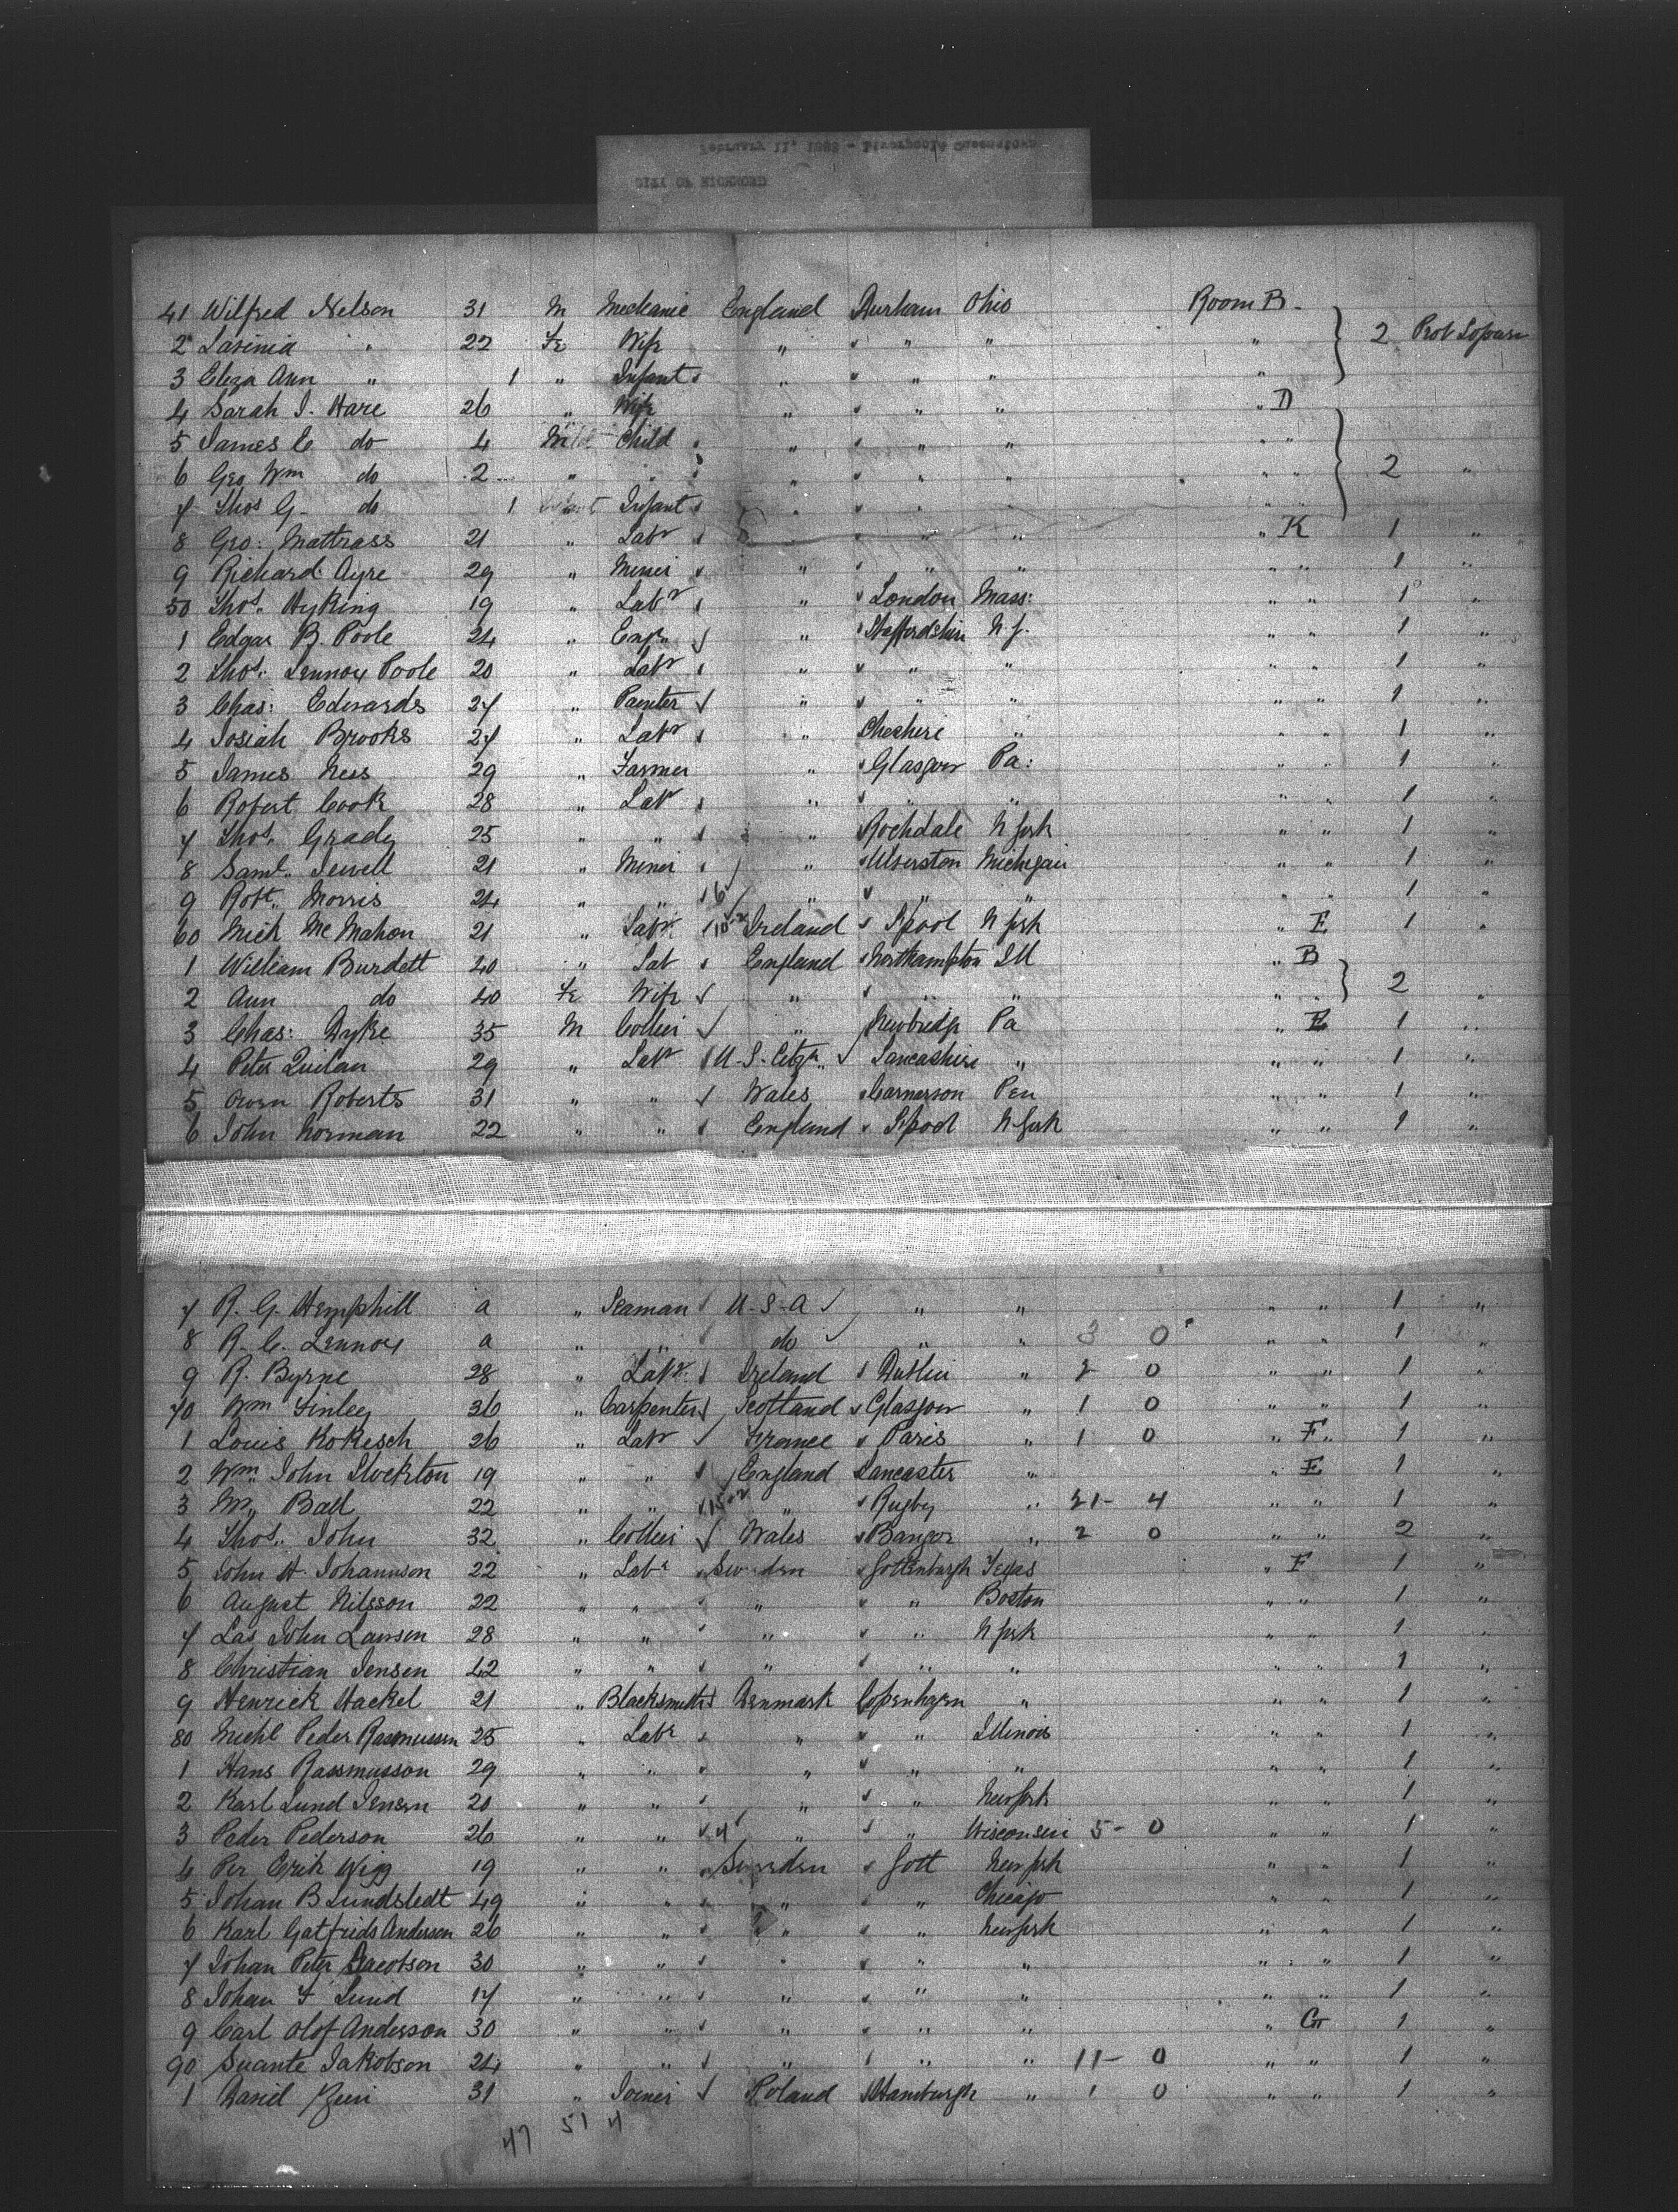 February 11, 1888 - Liverpool & Queenstown
CITY OF RICHMOND
41 Wilfred Nelson 31 M Mechanic England Durham Ohio Room B -
2 Lavinia " 22 Fe Wife " " " " " 2 Prob Sojourn
3 Eliza Ann " 1 " Infant " " " " "
4 Sarah J. Hare 26 " Wife " " " " " D
5 James E do 4 M Child " " " " "
6 Geo Wm do 2 " " " " " " " 2 "
7 Thos G. do 1 Infant " " " "
8 Geo: Mattrass 21 " Labr " " " K 1 "
9 Richard Ayre 29 " Miner " " " " " 1 "
50 Thos. Hyking 19 " Labr " London Mass: " " 1 "
1 Edgar B. Poole 24 " Engr " Staffordshire N J. " " 1 "
2 Thos: Lennox Poole 20 " Labr " " " " " 1 "
3 Chas: Edwards 27 " Painter " " " " " 1 "
4 Josiah Brooks 27 " Labr " Cheshire " " " 1 "
5 James Ness 29 " Farmer " Glasgow Pa: " " 1 "
6 Robert Cook 28 " Labr " " " " " 1 "
7 Thos. Grady 25 " " " Rochdale N York " " 1 "
8 Saml. Jewell 21 " Miner " Ulverston Michigan " " 1 "
9 Robt. Morris 24 " " 6 " " " " " 1 "
60 Mich McMahon 21 " Labr. Ireland L'pool N York " E 1 "
1 William Burdett 40 " Lab England Northampton Ill " B
2 Ann do 40 Fe Wife " " " " " 2 "
3 Chas: Dyke 35 M Collier " Newbridge Pa " E 1 "
4 Peter Quilan 29 " Labr U-S. Citzn. Lancashire " " " 1 "
5 Owen Roberts 31 " " Wales Carnarvon Pen " " 1 "
6 John Norman 22 " " England L'pool N York " " 1 "
7 R. G. Hemphill a " Seaman U-S-A " " " " 1 "
8 R. C. Lennox a " " do " " 3 0 " " 1 "
9 R. Byrne 28 " Labr. Ireland Dublin " 2 0 " " 1 "
70 Wm Finley 36 " Carpenter Scotland Glasgow " 1 0 " " 1 "
1 Louis Kokesch 26 " Labr France Paris " 1 0 " F " 1 "
2 Wm. John Stockton 19 " " England Lancaster " " E 1 "
3 Wm. Ball 22 " " " Rugby " 21- 4 " " 1 "
4 Thos. John 32 " Collier Wales Bangor " 2 0 " " 2 "
5 John H. Johannson 22 " Labr Sweden Gottenburgh Texas " F 1 "
6 August Nilsson 22 " " " " Boston " " 1 "
7 Las John Lawsen 28 " " " " N York " " 1 "
8 Christian Jensen 42 " " " " " " " 1 "
9 Henrick Hackel 21 " Blacksmith Denmark Copenhagen " " " 1 "
80 Michl Peder Rasmussen 25 " Labr " " Illinois " " 1 "
1 Hans Rassmusson 29 " " " " " " " 1 "
2 Karl Lund Jensen 20 " " " " New York " " 1 "
3 Peder Pederson 26 " " 4 " " Wisconsin 5- 0 " " 1 "
4 Per Erik Wigg 19 " " Sweden Gott New York " " 1 "
5 Johan B Lundstedt 49 " " " " Chicago " " 1 "
6 Karl Gatfrids Anderson 26 " " " " New York " " 1 "
7 Johan Peter Jacobson 30 " " " " " " " 1 "
8 Johan F Lund 17 " " " " " " " 1 "
9 Carl Olof Anderson 30 " " " " " " G 1 "
90 Suante Jakobson 24 " " " " " 11- 0 " " 1 "
1 David 31 " Joiner Poland Hamburgh " 1 0 " " 1 "
47 51 4